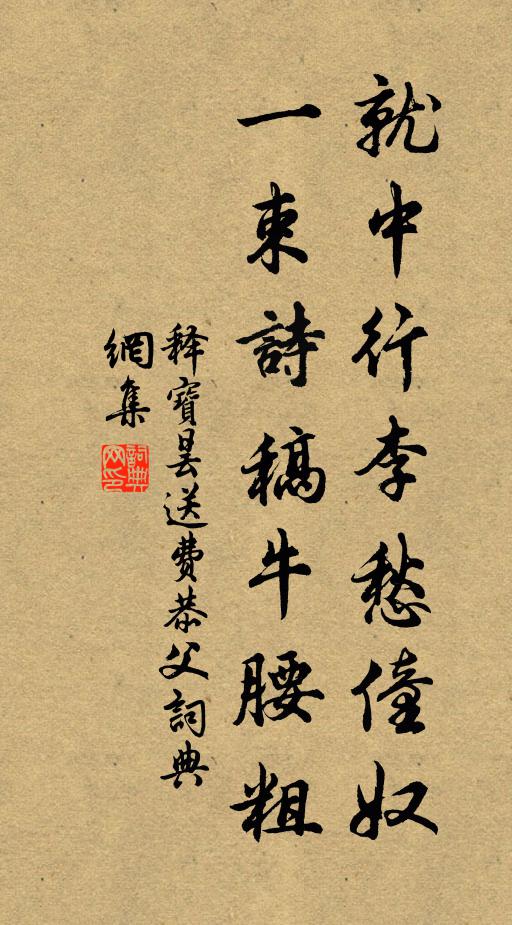 就中行李愁僮奴
一束詩稿牛腰粗
釋寶曇送費恭父詞典
網集
詞典網印